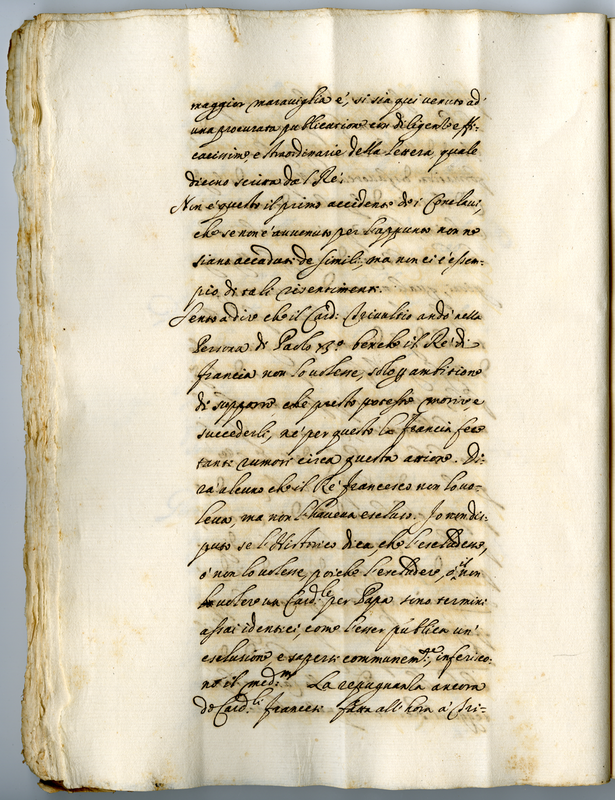 maggior maraviglia é, si sia qui venuto ad
una procurata publicatione con diligenze effi-
cacissime, e straordinarie della lettera, quale
dicono scritta dal Ré.
Non é questo il primo accidente dei Conclavi,
che se non é avvenuto per l'appunto non ne
siano accaduti de simili, ma non ci é essem-
pio di tali risentimenti.
Sento a dire che il Card: Trivultio andó nella
Persona di Paolo 3º benche il Ré di
francia non lo volesse, solo p ambitione
di supporre che presto potesse morire, e
succederli, né per questo la francia fece
tanti rumori circa questa attione. Di-
rá alcuno che il Ré francesco non lo vo-
leva, ma non l'haveva escluso. Io non dis-
puto se l'Historico dica, che l'escludesse,
ó non lo volesse, poiche l'escludere, ó il non
volere un Card.le per Papa sono termini
assai identici, come l'esser publica un'
esclusione, e sapersi communem.te, inferisco-
no il med.mo La repugnanza ancora
de Card.li francesi fatta all'hora á Tri-